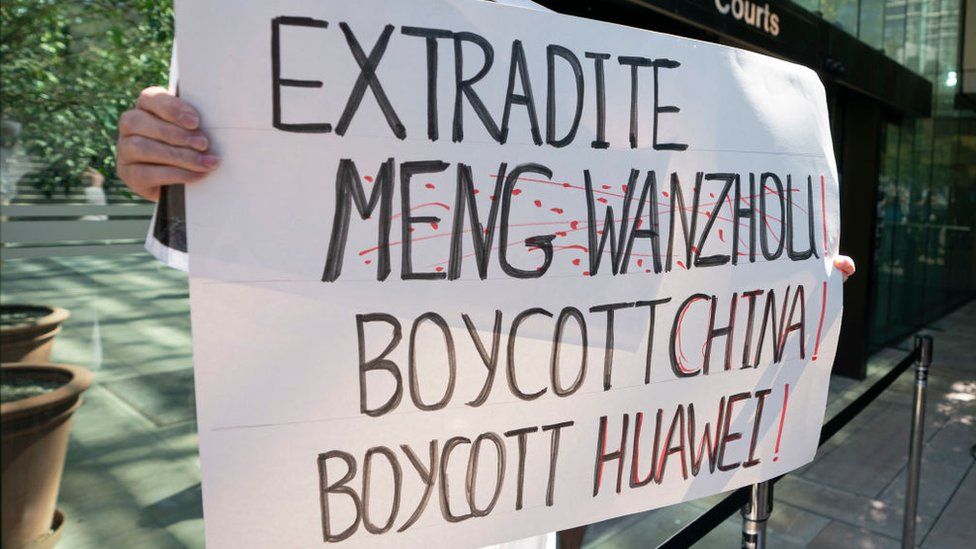 Courts
EXTRADITE
MENG WANZHOU!
BOYCOTT CHINA!
BOYCOTT HUAWEI!